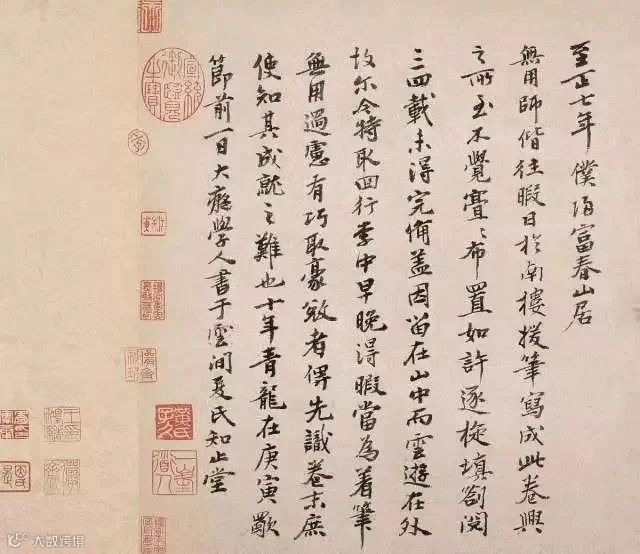 至正七年僕歸富春山居
無用師偕往暇日於南樓援筆寫成此卷興
之所至不覺亹亹布置如許逐旋填劄閱
三四載未得完備蓋因留在山中而雲遊在外
故尔今特取回行李中早晚得暇當為着筆
無用過慮有巧取豪敚者俾先識卷末庶
使知其成就之難也十年青龍在庚寅歜
節前一日大癡學人書于雲間夏氏知止堂
宣統御覽之寶
黃氏子久
一峯道人
大数跨境